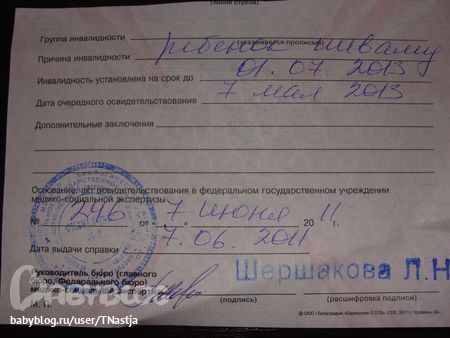 (линия отреза)
Группа инвалидности
(указывается прописью)
Причина инвалидности ребенок инвалид
Инвалидность установлена на срок до 01.07.2013
Дата очередного освидетельствования 7 мая 2013
Дополнительные заключения
Основание: акт освидетельствования в федеральном государственном учреждении
медико-социальной экспертизы
№ 246 от 7 июня 20 11
Дата выдачи справки 7.06.2011
Руководитель бюро (главного
бюро, Федерального бюро)
медико-социальной экспертизы
Шершакова Л.Н
(подпись)
(расшифровка подписи)
М. П.
babyblog.ru/user/TNastja